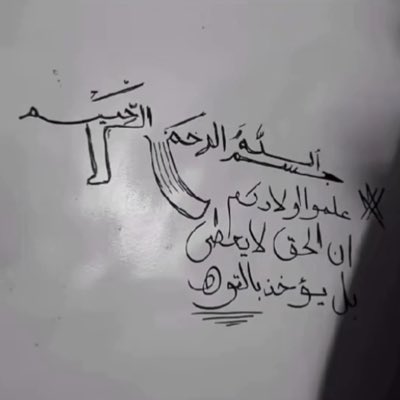 بسم الله الرحمن الرحيم
علموا اولادكم
ان الحق لا يعطى
بل يؤخذ بالقوه